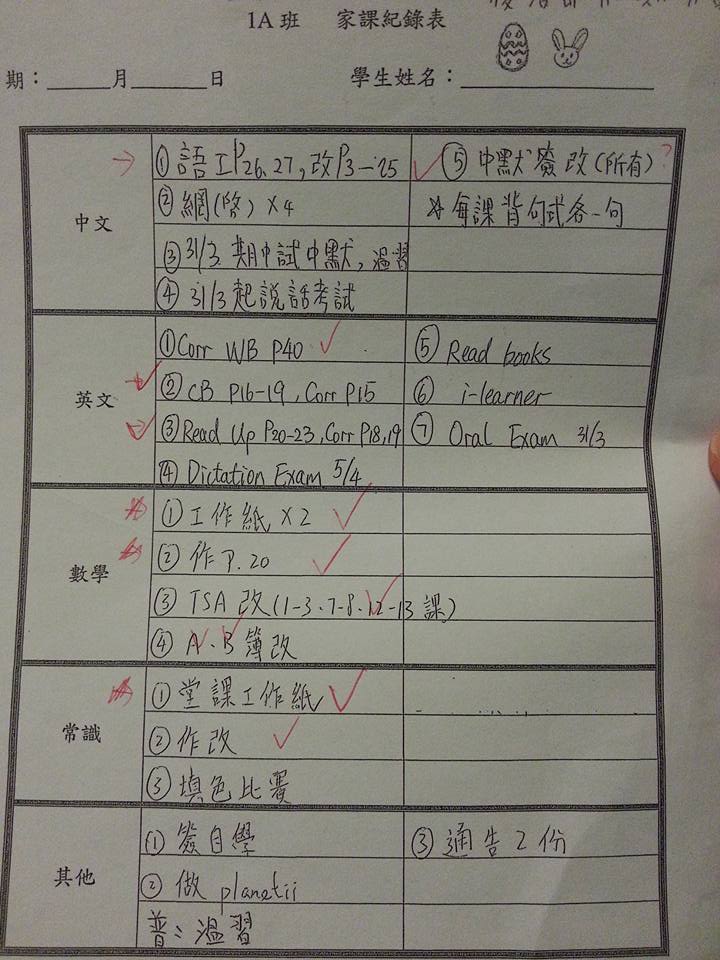 1A班 家課紀錄表
期：______月______日 學生姓名：______________
中文
①語工P26、27，改P3-25
②網(啓)×4
③31/3 期中試中默，溫習
④31/3起說話考試
⑤中默簽改(所有)?
☆每課背句式各一句
英文
①Corr WB P40
②CB P16-19, Corr P15
③Read Up P20-23, Corr P18,19
④Dictation Exam 5/4
⑤Read books
⑥i-learner
⑦Oral Exam 31/3
數學
①工作紙×2
②作P.20
③TSA改(1-3、7-8、12-13課)
④A、B簿改
常識
①堂課工作紙
②作改
③填色比賽
其他
①簽自學
②做 planetii
普：溫習
③通告2份